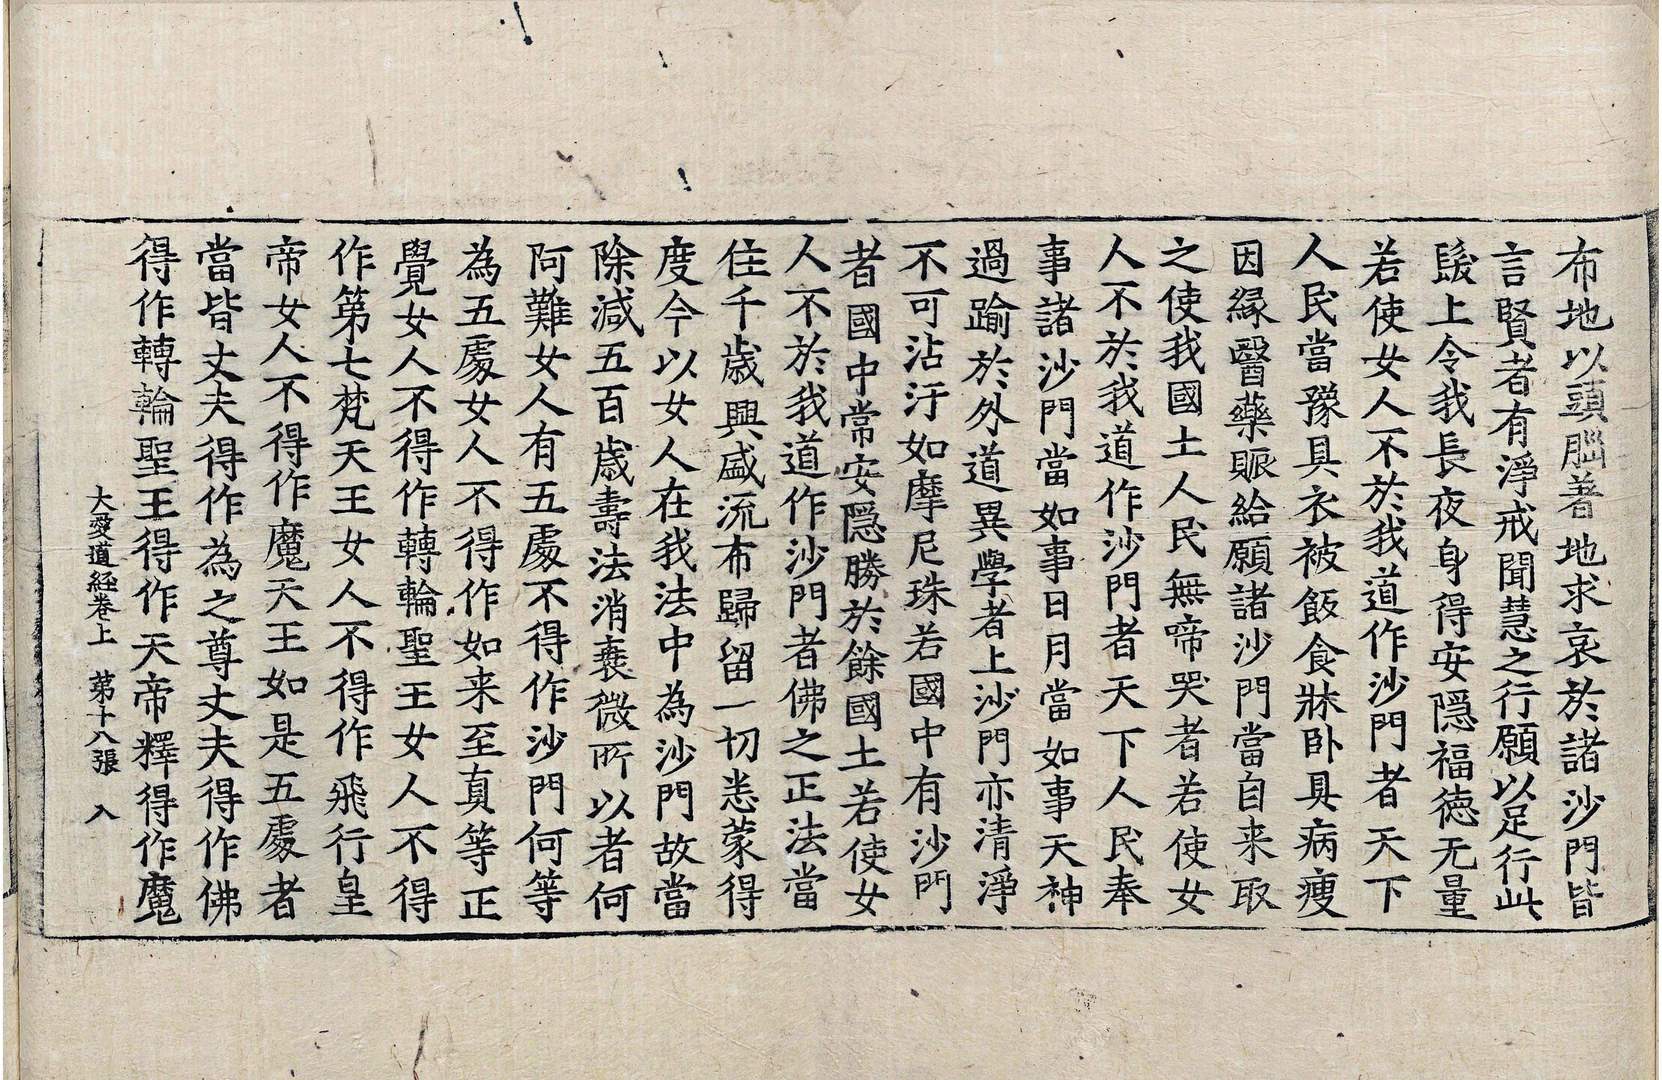 布地以頭腦著地求哀於諸沙門皆
言賢者有淨戒聞慧之行願以足行此
髮上令我長夜身得安隱福德无量
若使女人不於我道作沙門者天下
人民當豫具衣被飯食牀卧具病瘦
因縁醫藥賑給願諸沙門當自来取
之使我國土人民無啼哭者若使女
人不於我道作沙門者天下人民奉
事諸沙門當如事日月當如事天神
過踰於外道異學者上沙門亦清淨
不可沾汙如摩尼珠若國中有沙門
者國中常安隱勝於餘國土若使女
人不於我道作沙門者佛之正法當
住千歲興盛流布歸留一切悉蒙得
度今以女人在我法中為沙門故當
除減五百歲壽法消衰微所以者何
阿難女人有五處不得作沙門何等
為五處女人不得作如来至真等正
覺女人不得作轉輪聖王女人不得
作第七梵天王女人不得作飛行皇
帝女人不得作魔天王如是五處者
當皆丈夫得作為之尊丈夫得作佛
得作轉輪聖王得作天帝釋得作魔
大愛道經卷上　第十八張　入